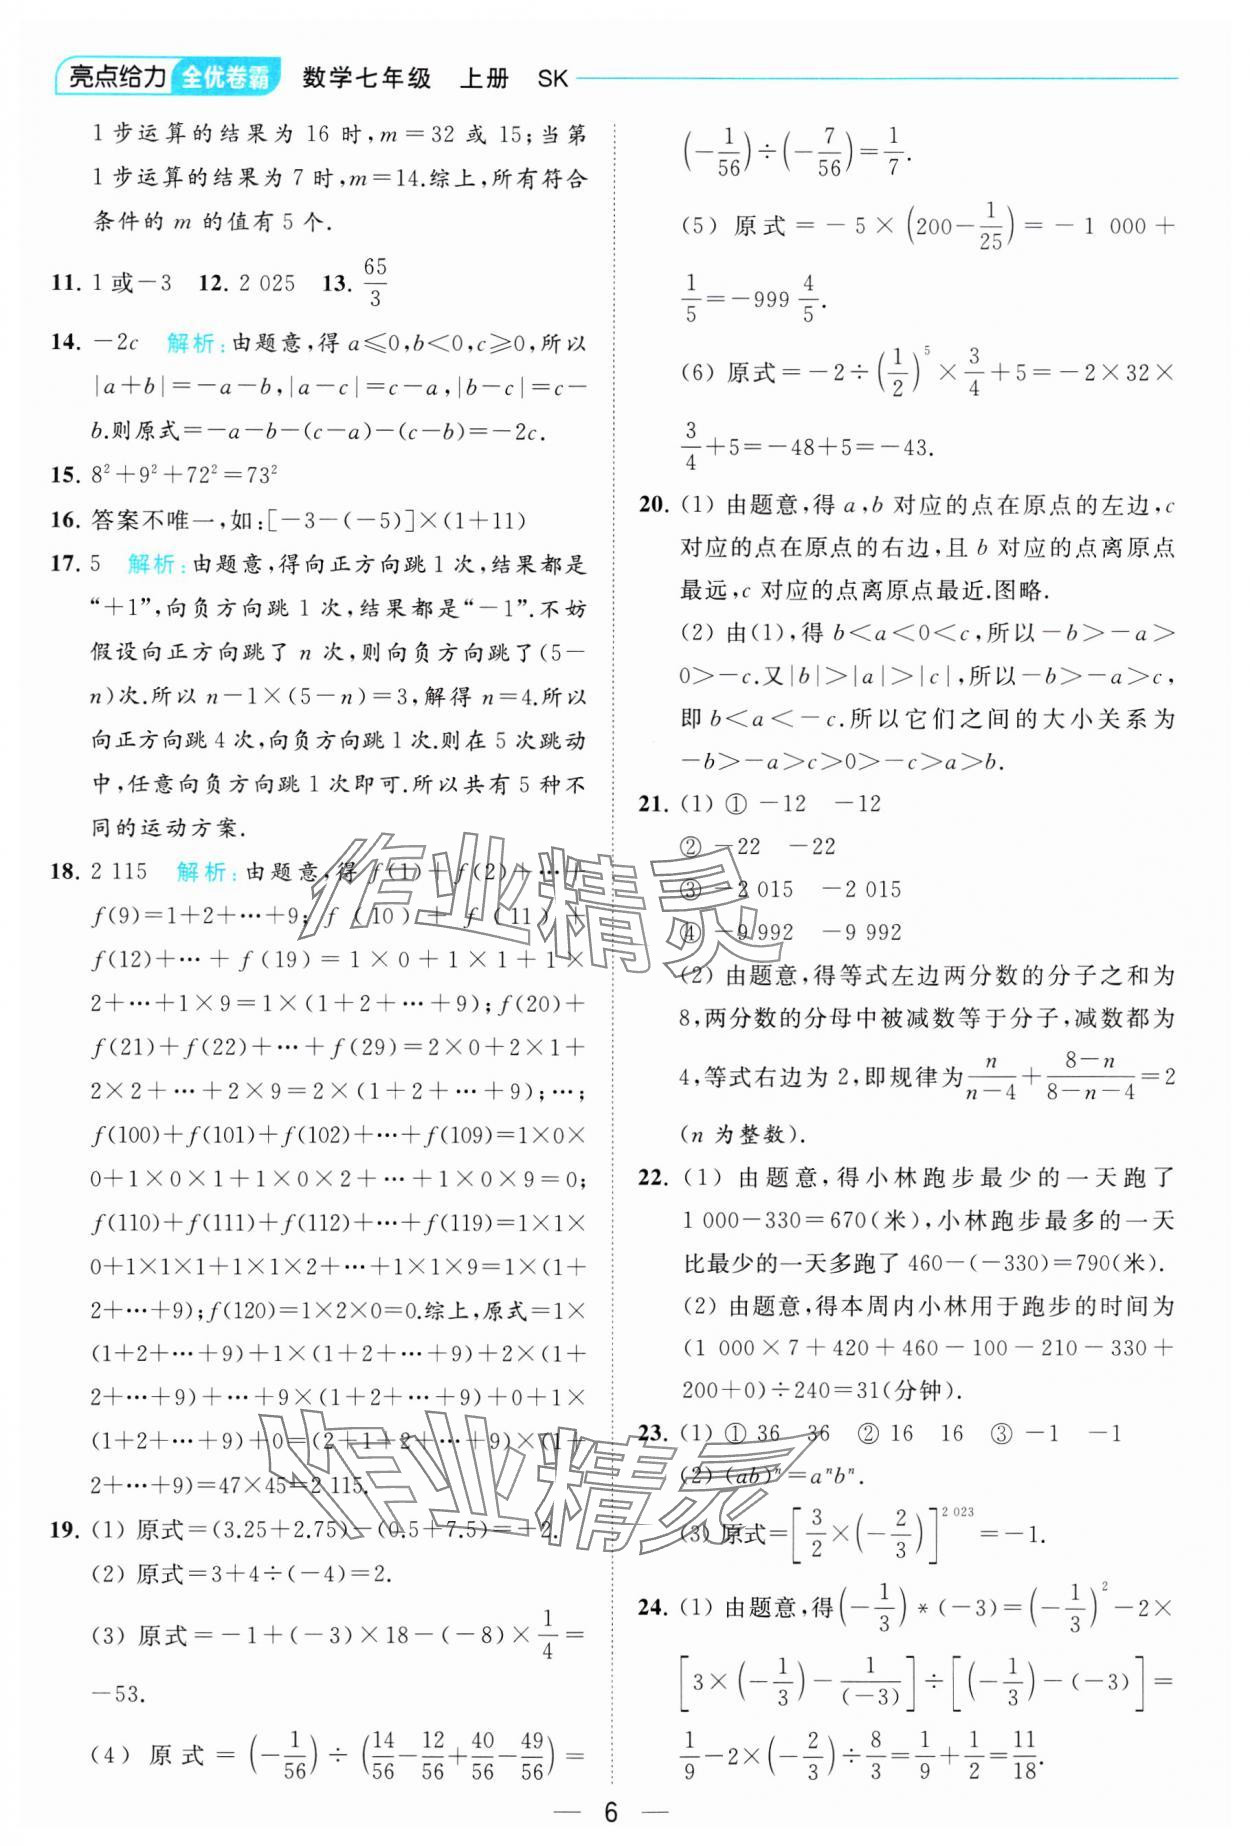 亮点给力 全优卷霸 数学七年级 上册 SK
1步运算的结果为16时,m=32或15;当第
1步运算的结果为7时,m=14.综上,所有符合
条件的m的值有5个.
11. 1或-3 12. 2 025 13. 65/3
14. -2c 解析:由题意,得a⩽0,b<0,c⩾0,所以
|a+b|=-a-b,|a-c|=c-a,|b-c|=c-
b.则原式=-a-b-(c-a)-(c-b)=-2c.
15. 8²+9²+72²=73²
16. 答案不唯一,如:[-3-(-5)]×(1+11)
17. 5 解析:由题意,得向正方向跳1次,结果都是
“+1”,向负方向跳1次,结果都是“-1”.不妨
假设向正方向跳了n次,则向负方向跳了(5-
n)次.所以n-1×(5-n)=3,解得n=4.所以
向正方向跳4次,向负方向跳1次.则在5次跳动
中,任意向负方向跳1次即可.所以共有5种不
同的运动方案.
18. 2 115 解析:由题意,得f(1)+f(2)+…+
f(9)=1+2+…+9;f(10)+f(11)+
f(12)+…+f(19)=1×0+1×1+1×
2+…+1×9=1×(1+2+…+9);f(20)+
f(21)+f(22)+…+f(29)=2×0+2×1+
2×2+…+2×9=2×(1+2+…+9);…;
f(100)+f(101)+f(102)+…+f(109)=1×0×
0+1×0×1+1×0×2+…+1×0×9=0;
f(110)+f(111)+f(112)+…+f(119)=1×1×
0+1×1×1+1×1×2+…+1×1×9=1×(1+
2+…+9);f(120)=1×2×0=0.综上,原式=1×
(1+2+…+9)+1×(1+2+…+9)+2×(1+
2+…+9)+…+9×(1+2+…+9)+0+1×
(1+2+…+9)+0=(2+1+2+…+9)×(1+
2+…+9)=47×45=2 115.
19. (1) 原式=(3.25+2.75)-(0.5+7.5)=-2.
(2) 原式=3+4÷(-4)=2.
(3) 原式=-1+(-3)×18-(-8)×1/4=
-53.
(4) 原式=(-1/56)÷(14/56-12/56+40/56-49/56)=
(-1/56)÷(-7/56)=1/7.
(5) 原式=-5×(200-1/25)=-1 000+
1/5=-999 4/5.
(6) 原式=-2÷(1/2)⁵×3/4+5=-2×32×
3/4+5=-48+5=-43.
20. (1) 由题意,得a,b对应的点在原点的左边,c
对应的点在原点的右边,且b对应的点离原点
最远,c对应的点离原点最近.图略.
(2) 由(1),得b<a<0<c,所以-b>-a>
0>-c.又|b|>|a|>|c|,所以-b>-a>c,
即b<a<-c.所以它们之间的大小关系为
-b>-a>c>0>-c>a>b.
21. (1) ① -12 -12
② -22 -22
③ -2 015 -2 015
④ -9 992 -9 992
(2) 由题意,得等式左边两分数的分子之和为
8,两分数的分母中被减数等于分子,减数都为
4,等式右边为2,即规律为n/(n-4)+(8-n)/(8-n-4)=2
(n为整数).
22. (1) 由题意,得小林跑步最少的一天跑了
1 000-330=670(米),小林跑步最多的一天
比最少的一天多跑了460-(-330)=790(米).
(2) 由题意,得本周内小林用于跑步的时间为
(1 000×7+420+460-100-210-330+
200+0)÷240=31(分钟).
23. (1) ① 36 36 ② 16 16 ③ -1 -1
(2) (ab)ⁿ=aⁿbⁿ.
(3) 原式=[3/2×(-2/3)]²⁰²³=-1.
24. (1) 由题意,得(-1/3)*(-3)=(-1/3)²-2×
[3×(-1/3)-1/(-3)]÷[(-1/3)-(-3)]=
1/9-2×(-2/3)÷8/3=1/9+1/2=11/18.
— 6 —
作业精灵
作业精灵